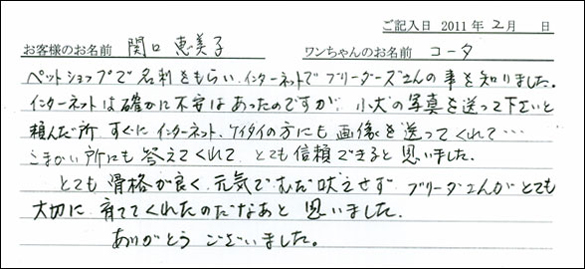 ご記入日 2011年2月 日
お客様のお名前 関口 恵美子 ワンちゃんのお名前 コータ
ペットショップで名刺をもらい、インターネットでブリーダーズさんの事を知りました。
インターネットは確かに不安はあったのですが、小犬の写真を送って下さいと
頼んだ所 すぐにインターネット、ケイタイの方にも画像を送ってくれて…
こまかい所にも答えてくれて、とても信頼できると思いました。
とても骨格が良く、元気でむだ吠えせず ブリーダさんがとても
大切に育ててくれたのだなあと思いました。
ありがとうございました。